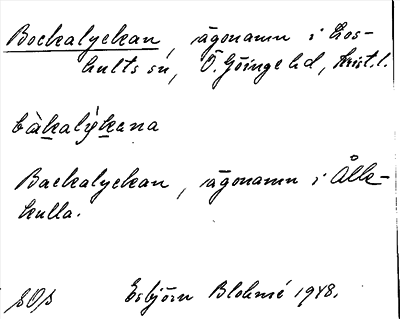 Bockalyckan, ägonamn i Los-
hults sn, Ö. Göinge hd, Krist. l.
bàkalýkana
Backalyckan, ägonamn i Älle-
kulla.
SOS Esbjörn Blohmé 1948.